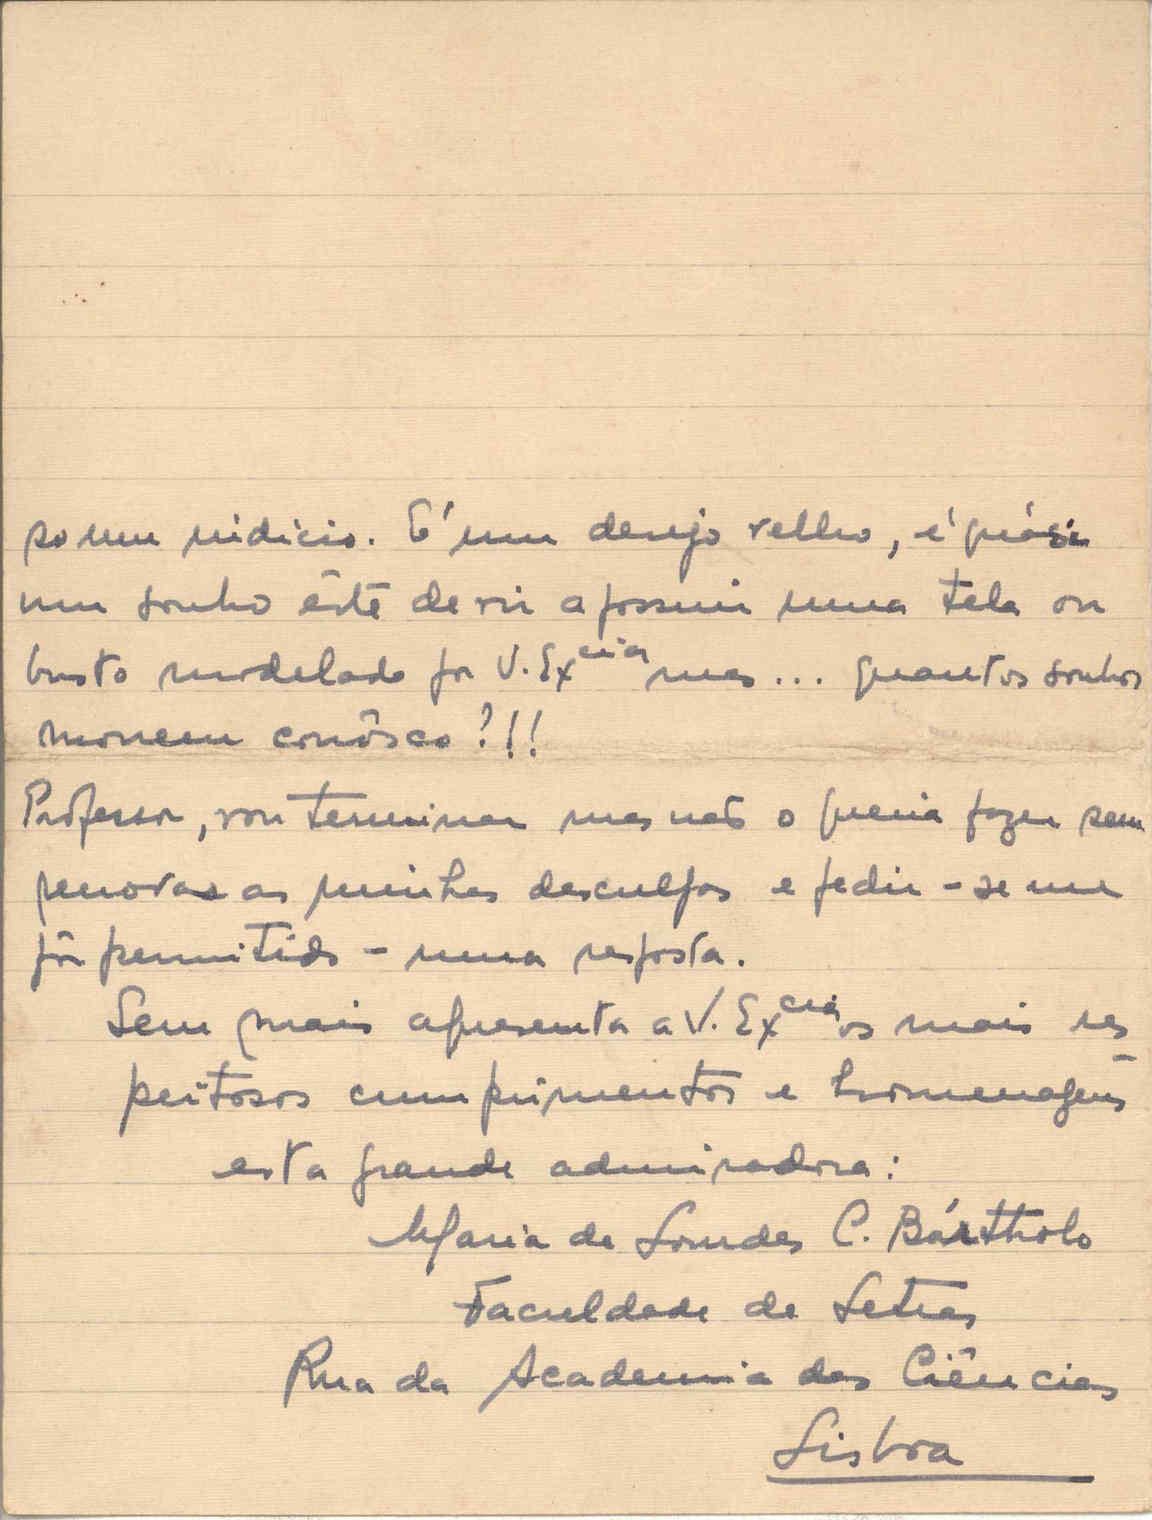 so um indício. É um desejo velho, é quási
um sonho êste de vir a possuir uma tela ou
busto modelado por V. Ex<sup>cia</sup> mas... quantos sonhos
morrem conôsco?!!
Professor, vou terminar mas não o queria fazer sem
renovar as minhas desculpas e pedir - se me
fôr permitido - uma resposta.
Sem mais apresenta a V. Ex<sup>cia</sup> os mais res
peitosos cumprimentos e homenagens
esta grande admiradora:
Maria de Lourdes C. Bártholo
Faculdade de Letras
Rua da Academia das Ciências
Lisboa